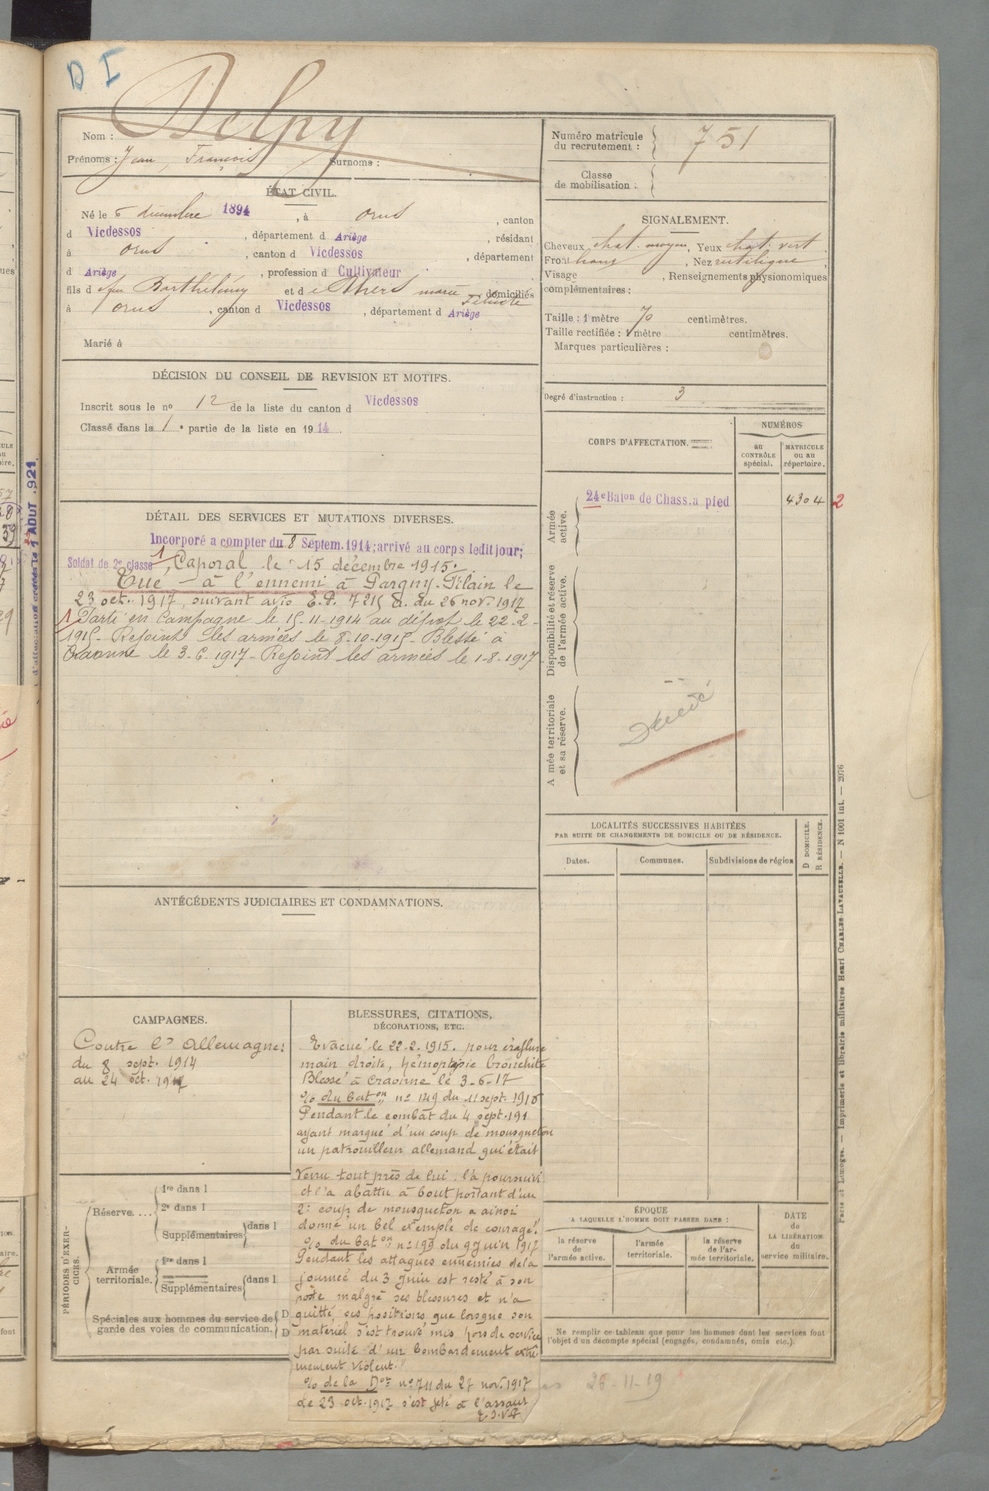 D I
Delpy
Nom :
Prénoms : Jean, François Surnoms :
ÉTAT CIVIL.
Né le 6 décembre 1894, à Orus, canton
d Vicdessos, département d Ariège, résidant
à Orus, canton d Vicdessos, département
d Ariège, profession d Cultivateur
fils d e feu Barthélemy et d e marie domiciliés
à Orus, canton d Vicdessos, département d Ariège
Marié à
DÉCISION DU CONSEIL DE REVISION ET MOTIFS.
Inscrit sous le no 12 de la liste du canton d Vicdessos
Classé dans la 1e partie de la liste en 1914
DÉTAIL DES SERVICES ET MUTATIONS DIVERSES.
Incorporé a compter du 8 Septem. 1914; arrivé au corps ledit jour;
Soldat de 2e classe, Caporal le 15 décembre 1915.
Tué à l'ennemi à Pargny-Filain le
23 oct. 1917, suivant avis du 26 nov. 1917
Parti en campagne le 15-11-1914 au dépôt le 22-2-
1915- Rejoint les armées le 8-10-1915- Blessé à
Craonne le 3-6-1917- Rejoint les armées le 1-8-1917
ANTÉCÉDENTS JUDICIAIRES ET CONDAMNATIONS.
CAMPAGNES.
Contre l'Allemagne:
du 8 sept. 1914
au 24 oct. 1917
BLESSURES, CITATIONS,
DÉCORATIONS, ETC.
Evacué le 22.2.1915. pour éraflure
main droite, hémoptysie bronchite
Blessé à Craonne le 3-6-17
% du Baton no 149 du 11 sept. 1916
Pendant le combat du 4 sept. 191
ayant manqué d'un coup de mousqueton
un patrouilleur allemand qui était
venu tout près de lui, l'a poursuivi
et l'a abattu à bout portant d'un
2e coup de mousqueton a ainsi
donné un bel exemple de courage.
% du Baton no 193 du 9 juin 1917
Pendant les attaques ennemies de la
journée du 3 juin est resté à son
poste malgré ses blessures et n'a
quitté ses positions que lorsque son
matériel s'est trouvé mis hors de service
par suite d'un bombardement extrê-
mement violent.
% de la Don no 711 du 27 nov. 1917
le 23 oct. 1917 s'est jeté à l'assaut
T.S.V.P
PÉRIODES D'EXER-
CICES.
Réserve....
1re dans l
2e dans l
Supplémentaires dans l
Armée
territoriale.
1re dans l
Supplémentaires dans l
Spéciales aux hommes du service de
garde des voies de communication.
D
D
Numéro matricule
du recrutement : 751
Classe
de mobilisation :
SIGNALEMENT.
Cheveux chat. moyen, Yeux chat. vert
Front haut, Nez rectiligne
Visage , Renseignements physionomiques
complémentaires :
Taille : 1 mètre 70 centimètres.
Taille rectifiée : 1 mètre centimètres.
Marques particulières :
Degré d'instruction : 3
CORPS D'AFFECTATION.
NUMÉROS
au
CONTRÔLE
spécial.
MATRICULE
ou au
répertoire.
Armée
active.
24e Baton de Chass. a pied 4304 2
Disponibilité et réserve
de l'armée active.
Armée territoriale
et sa réserve.
Décédé
LOCALITÉS SUCCESSIVES HABITÉES
PAR SUITE DE CHANGEMENTS DE DOMICILE OU DE RÉSIDENCE.
Dates. Communes. Subdivisions de région
D DOMICILE.
R RÉSIDENCE.
ÉPOQUE
A LAQUELLE L'HOMME DOIT PASSER DANS :
la réserve
de
l'armée active.
l'armée
territoriale.
la réserve
de l'ar-
mée territoriale.
DATE
de
LA LIBÉRATION
du
service militaire.
Ne remplir ce tableau que pour les hommes dont les services font
l'objet d'un décompte spécial (engagés, condamnés, omis etc.).
Paris et Limoges. — Imprimerie et librairie militaires Henri CHARLES-LAVAUZELLE. — N 1001 int. — 2076
AOUT 1921